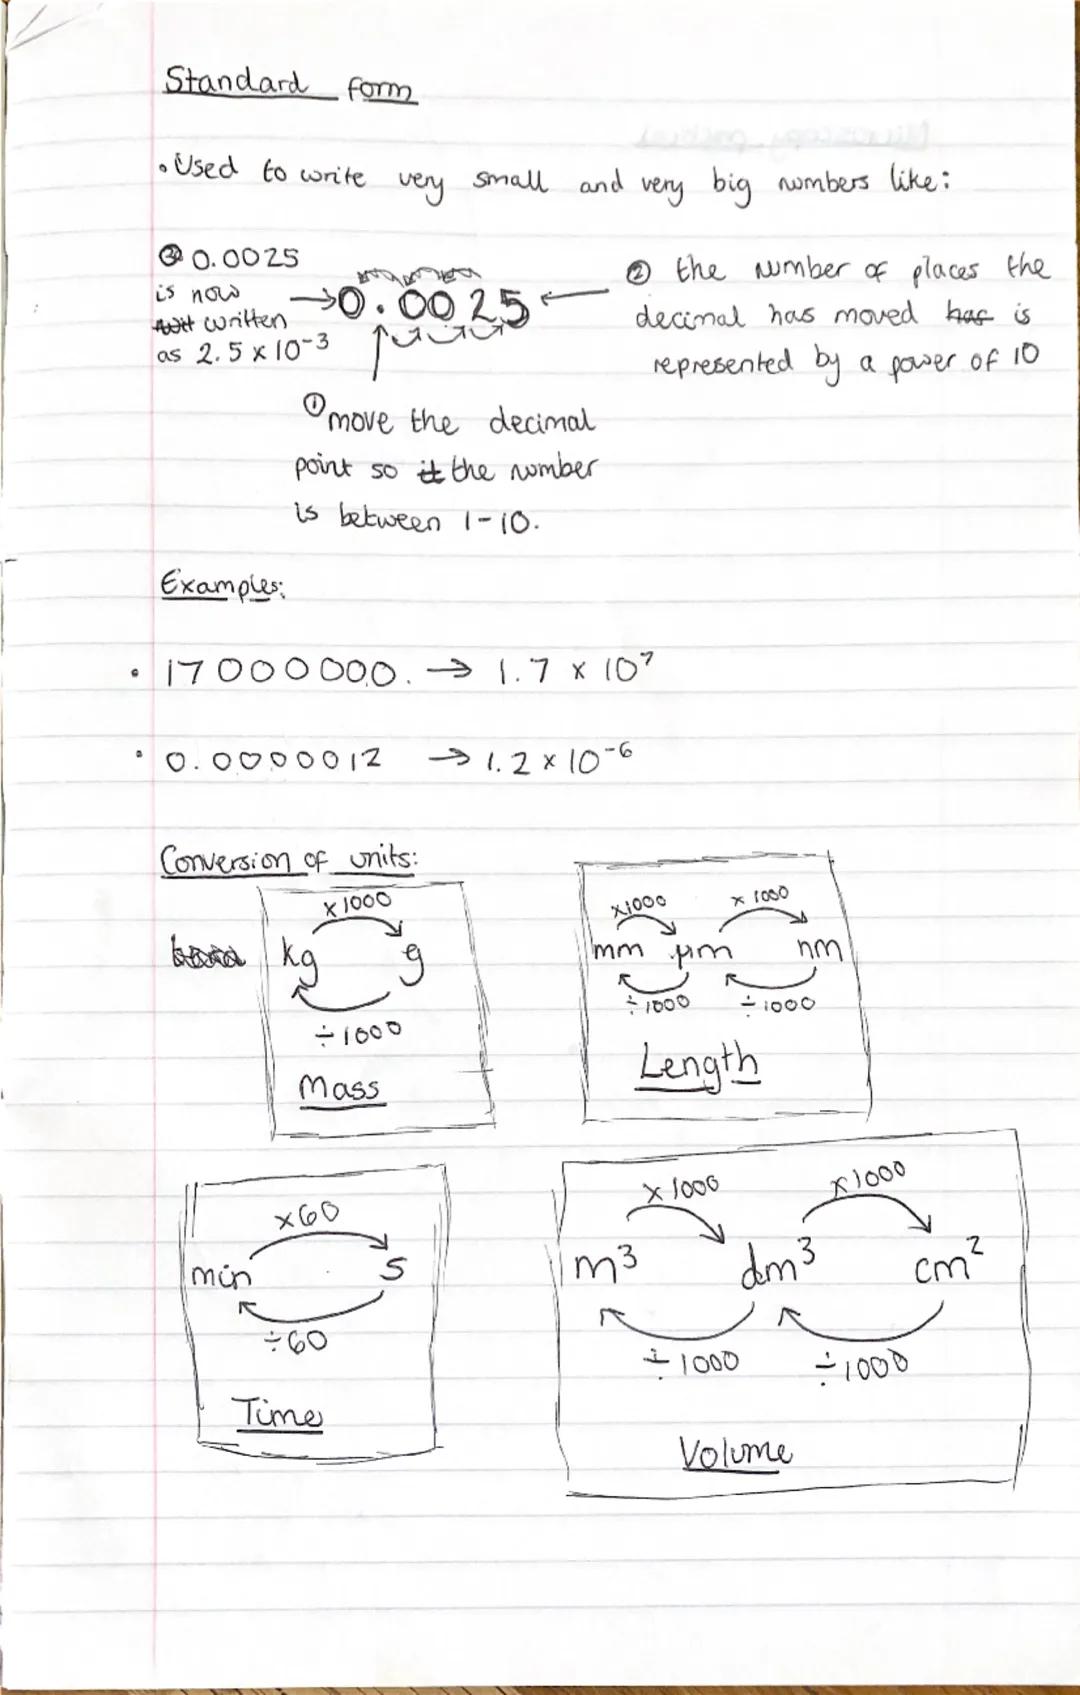 Standard form
• Used to write very small and very big numbers like:
③ 0.0025
is now
written
as 2.5 x 10⁻³
→ 0.0025 ←
② the number of places the
decimal has moved has is
represented by a power of 10
① move the decimal
point so it the number
is between 1-10.
Examples:
• 17000000. → 1.7 x 10⁷
• 0.0000012 → 1.2 x 10⁻⁶
Conversion of units:
x1000
kg g
÷1000
Mass
x1000 x 1000
mm µm nm
÷1000 ÷1000
Length
x60
min s
÷60
Time
x 1000 x1000
m³ dm³ cm²
÷1000 ÷1000
Volume